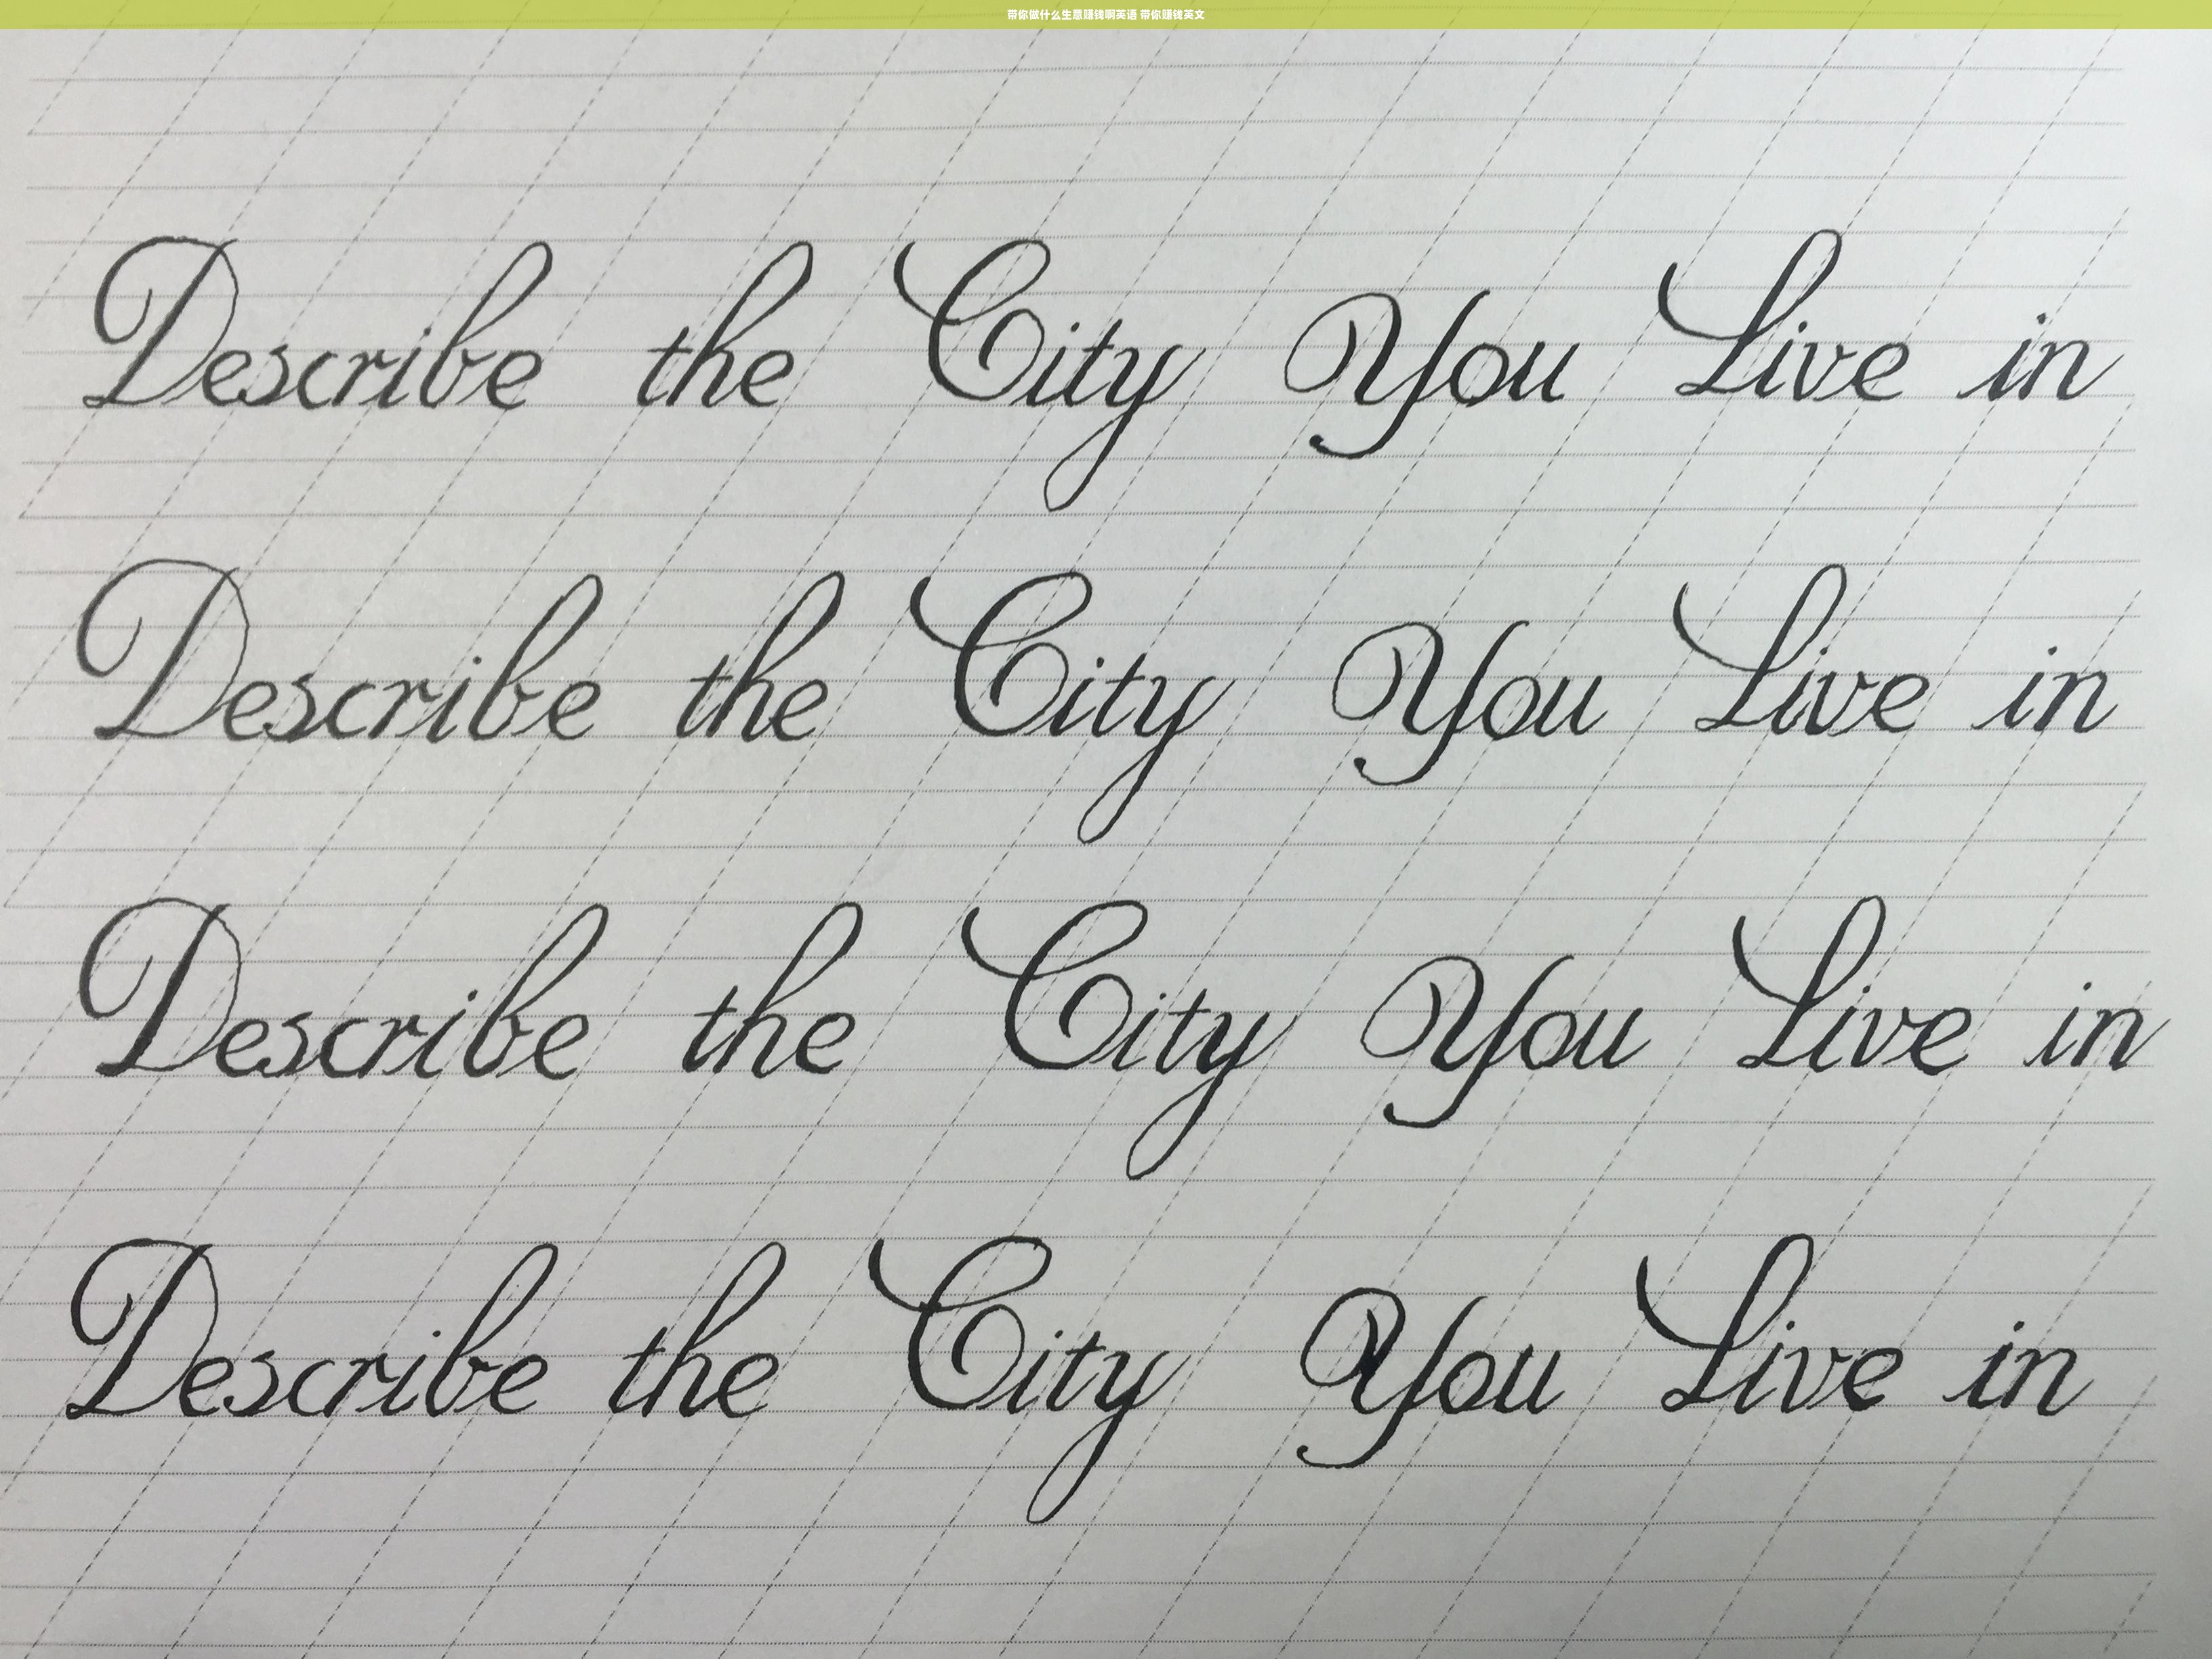 带你做什么生意赚钱啊英语 带你赚钱英文
Describe the City You Live in
Describe the City You Live in
Describe the City You Live in
Describe the City You Live in